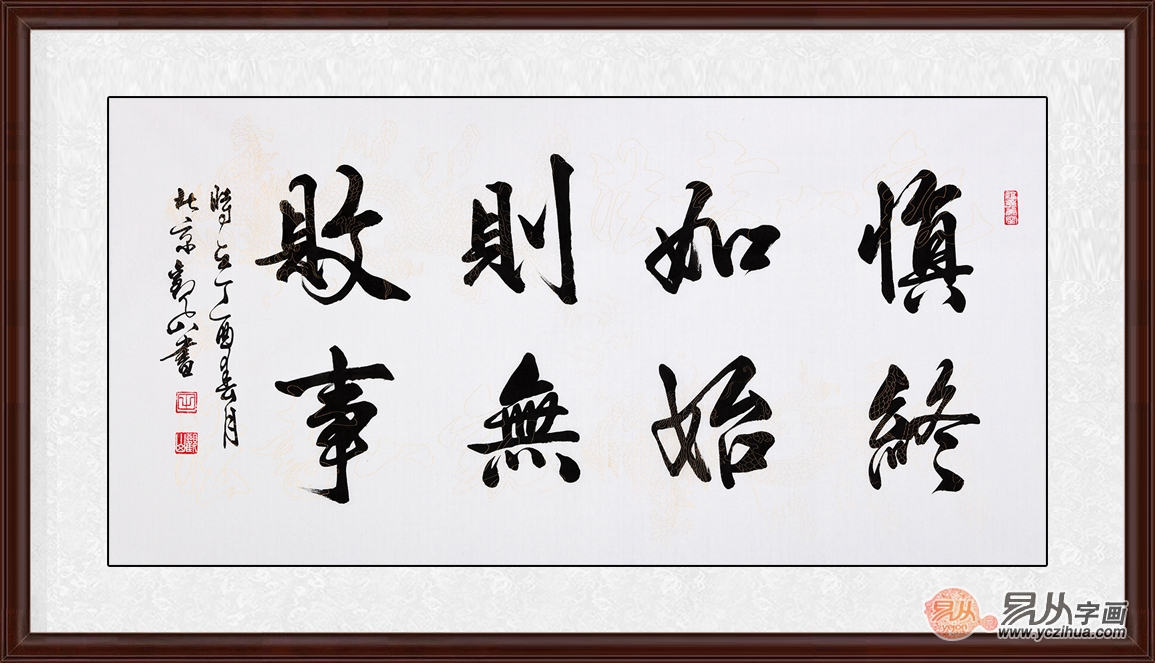 慎終
如始
則無
敗事
時在丁酉春月
北京觀山書
觀山
易从
yicon
易从字画
www.yczihua.com